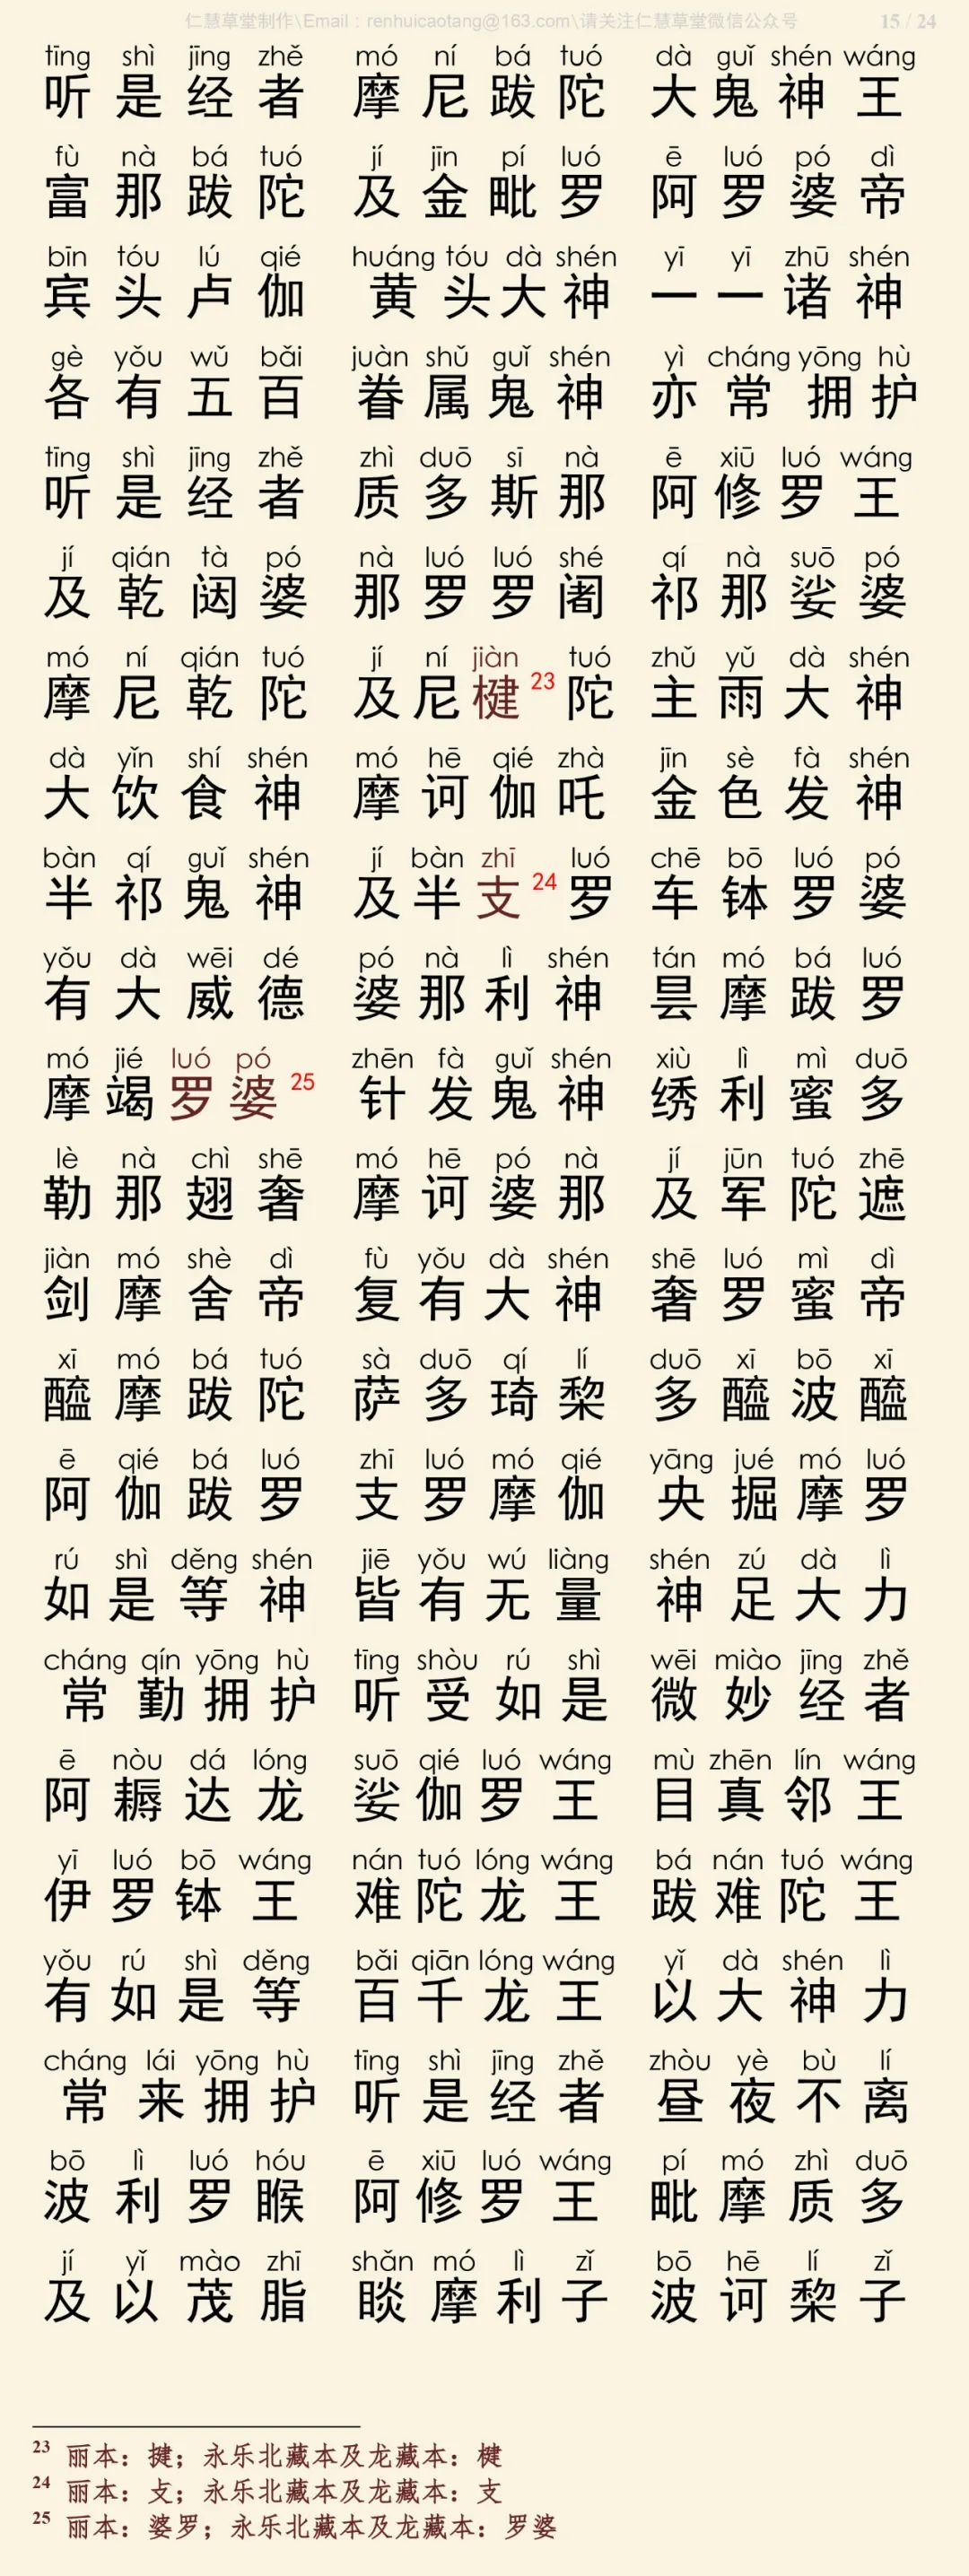 仁慧草堂制作\Email：renhuicaotang@163.com\请关注仁慧草堂微信公众号 15 / 24
tīng shì jīng zhě mó ní bá tuó dà guǐ shén wáng
听是经者 摩尼跋陀 大鬼神王
fù nà bá tuó jí jīn pí luó ē luó pó dì
富那跋陀 及金毗罗 阿罗婆帝
bīn tóu lú qié huáng tóu dà shén yī yī zhū shén
宾头卢伽 黄头大神 一一诸神
gè yǒu wǔ bǎi juàn shǔ guǐ shén yì cháng yōng hù
各有五百 眷属鬼神 亦常拥护
tīng shì jīng zhě zhì duō sī nà ē xiū luó wáng
听是经者 质多斯那 阿修罗王
jí qián tà pó nà luó luó shé qí nà suō pó
及乾闼婆 那罗罗阇 祁那娑婆
mó ní qián tuó jí ní jiàn tuó zhǔ yǔ dà shén
摩尼乾陀 及尼楗23陀 主雨大神
dà yǐn shí shén mó hē qié zhà jīn sè fà shén
大饮食神 摩诃伽吒 金色发神
bàn qí guǐ shén jí bàn zhī luó chē bō luó pó
半祁鬼神 及半支24罗 车钵罗婆
yǒu dà wēi dé pó nà lì shén tán mó bá luó
有大威德 婆那利神 昙摩跋罗
mó jié luó pó zhēn fà guǐ shén xiù lì mì duō
摩竭罗婆25 针发鬼神 绣利蜜多
lè nà chì shē mó hē pó nà jí jūn tuó zhē
勒那翅奢 摩诃婆那 及军陀遮
jiàn mó shè dì fù yǒu dà shén shē luó mì dì
剑摩舍帝 复有大神 奢罗蜜帝
xī mó bá tuó sà duō qí lí duō xī bō xī
醯摩跋陀 萨多琦棃 多醯波醯
ē qié bá luó zhī luó mó qié yāng jué mó luó
阿伽跋罗 支罗摩伽 央掘摩罗
rú shì děng shén jiē yǒu wú liàng shén zú dà lì
如是等神 皆有无量 神足大力
cháng qín yōng hù tīng shòu rú shì wēi miào jīng zhě
常勤拥护 听受如是 微妙经者
ē nòu dá lóng suō qié luó wáng mù zhēn lín wáng
阿耨达龙 娑伽罗王 目真邻王
yī luó bō wáng nán tuó lóng wáng bá nán tuó wáng
伊罗钵王 难陀龙王 跋难陀王
yǒu rú shì děng bǎi qiān lóng wáng yǐ dà shén lì
有如是等 百千龙王 以大神力
cháng lái yōng hù tīng shì jīng zhě zhòu yè bù lí
常来拥护 听是经者 昼夜不离
bō lì luó hóu ē xiū luó wáng pí mó zhì duō
波利罗睺 阿修罗王 毗摩质多
jí yǐ mào zhī shǎn mó lì zǐ bō hē lí zǐ
及以茂脂 睒摩利子 波诃棃子
23 丽本：揵；永乐北藏本及龙藏本：楗
24 丽本：攴；永乐北藏本及龙藏本：支
25 丽本：婆罗；永乐北藏本及龙藏本：罗婆